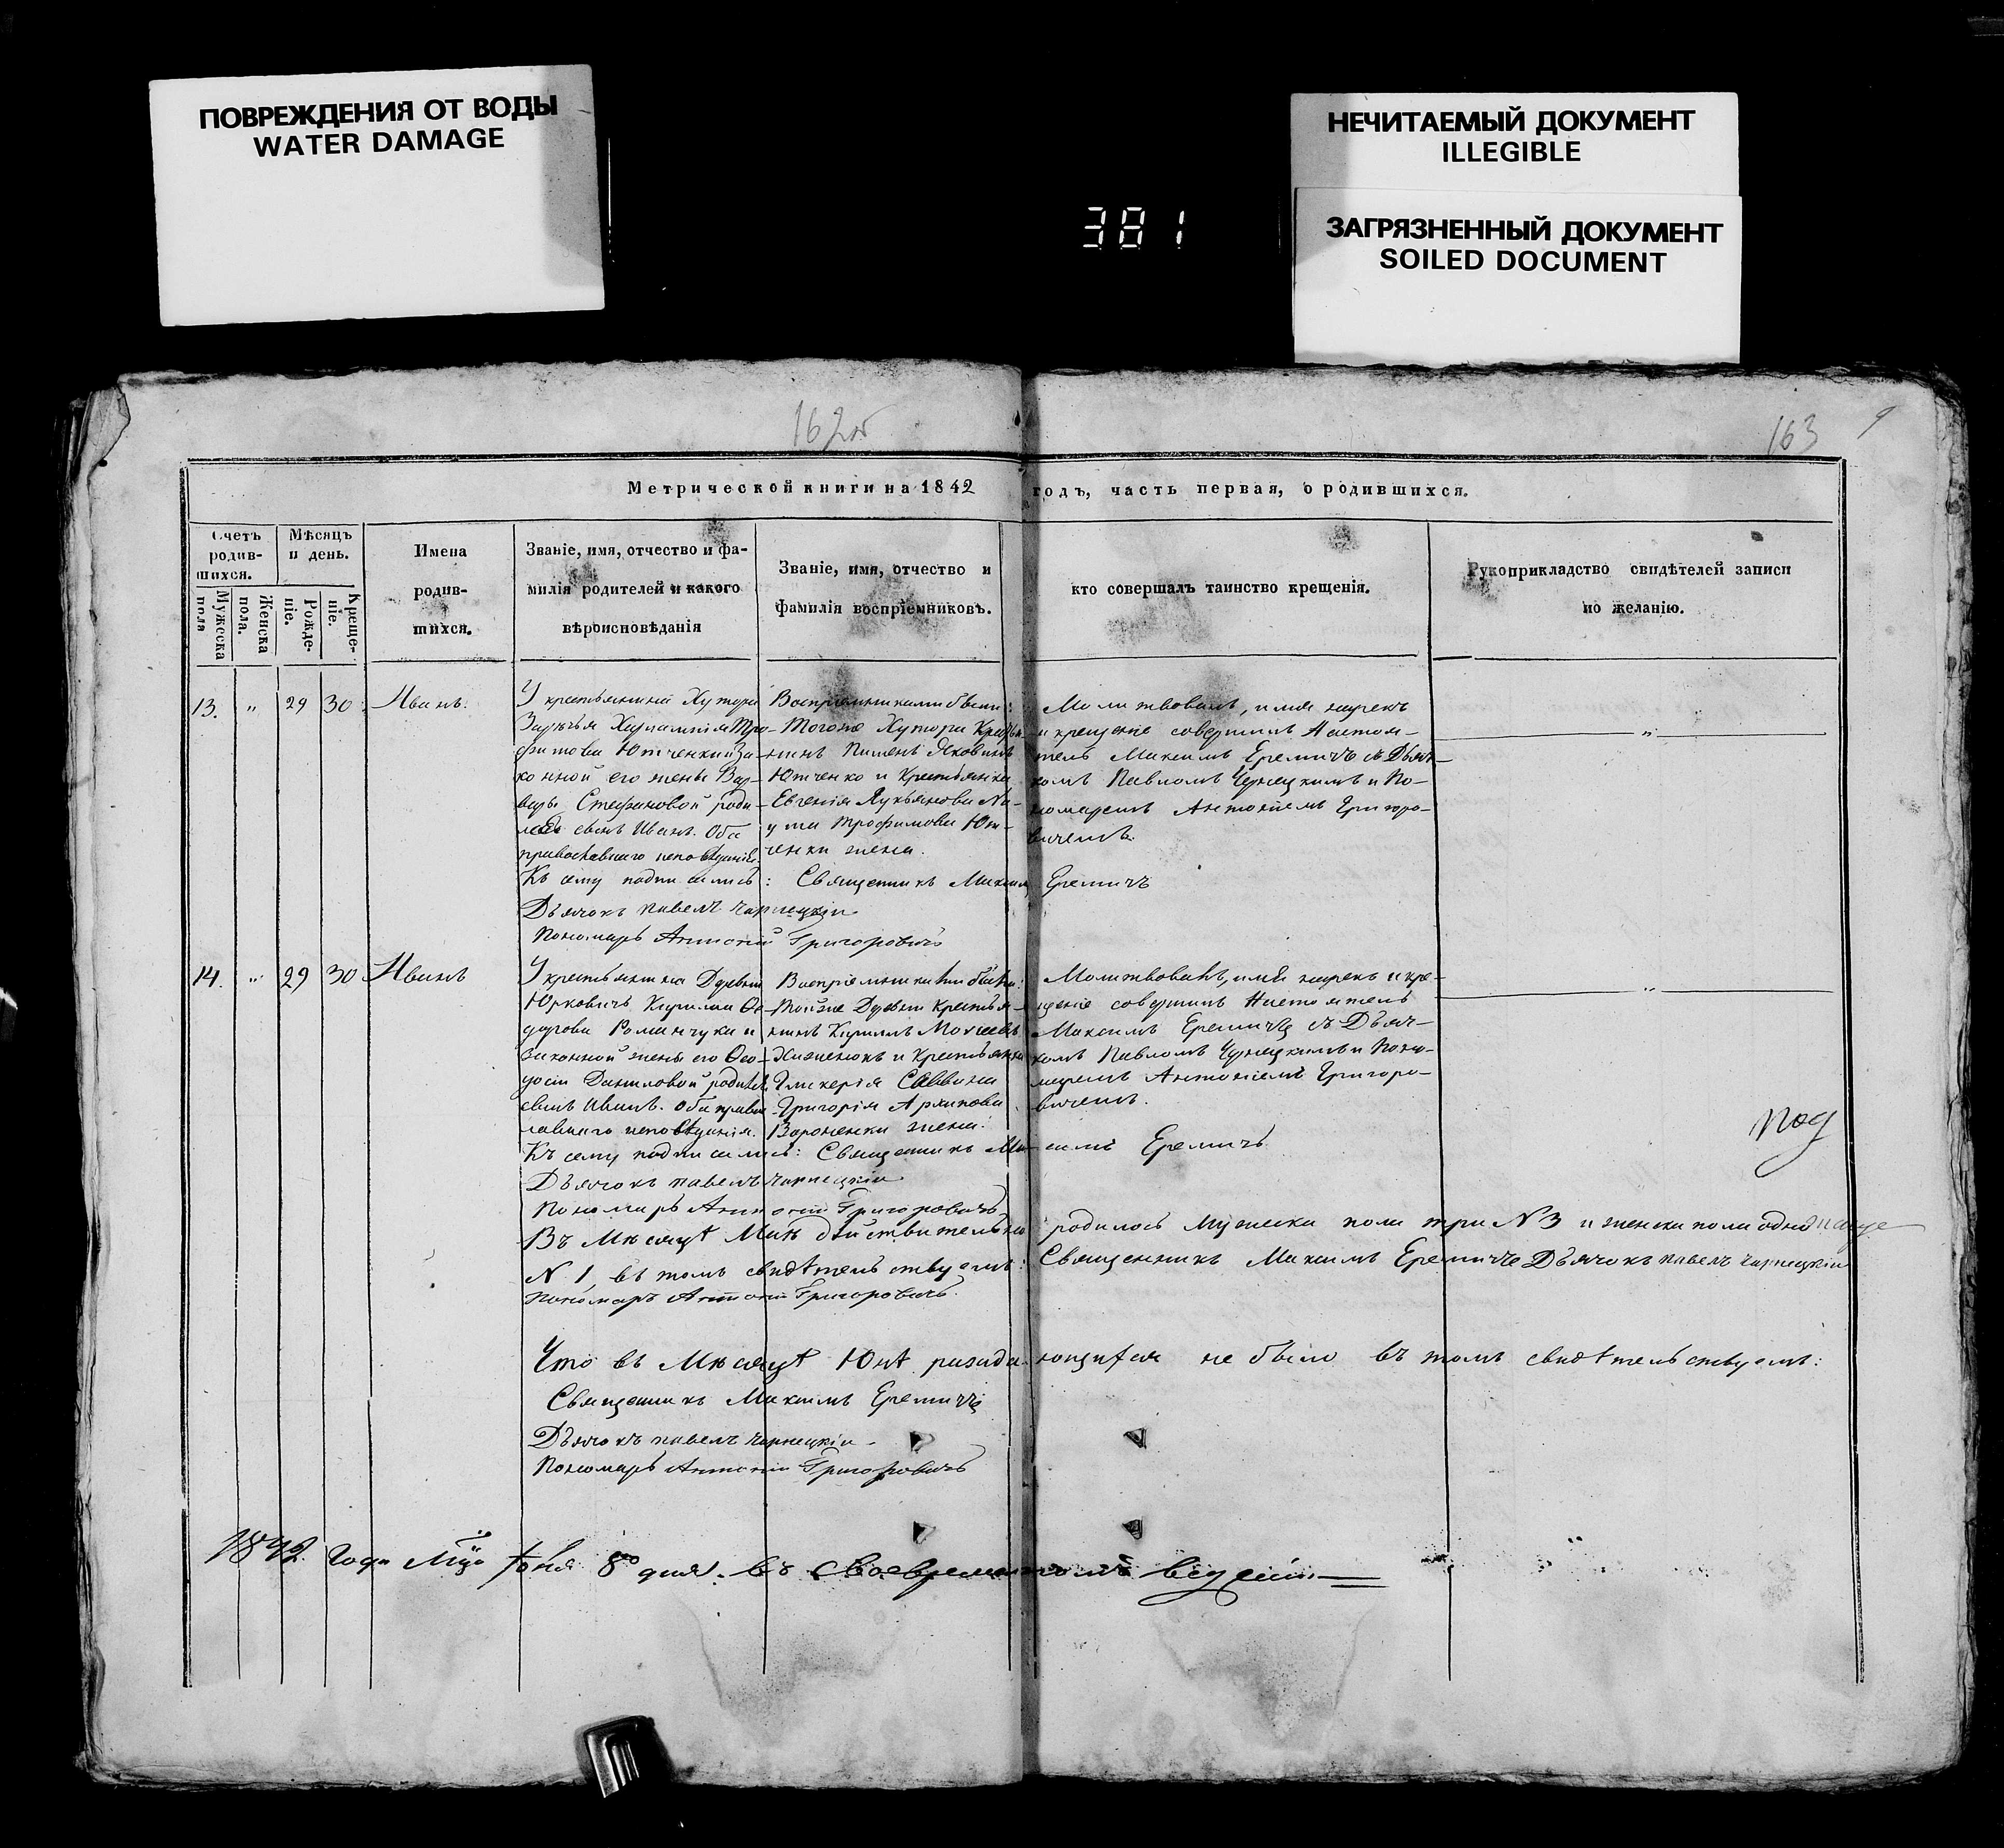 ПОВРЕЖДЕНИЯ ОТ ВОДЫ
WATER DAMAGE
НЕЧИТАЕМЫЙ ДОКУМЕНТ
ILLEGIBLE
ЗАГРЯЗНЕННЫЙ ДОКУМЕНТ
SOILED DOCUMENT
381
162об
163
Метрической книги на 1842 годъ, часть первая, о родившихся.
Счетъ родив-шихся.
Мужеска пола
Женска пола.
Мѣсяцъ и день.
Рожде-ніе.
Креще-ніе.
Имена
родив-
шихся.
Званіе, имя, отчество и фа-
милія родителей и какого
вѣроисповѣданія
Званіе, имя, отчество и
фамилія воспріемниковъ.
кто совершалъ таинство крещенія.
Рукоприкладство свидѣтелей записи
по желанію.
13. " 29 30 Иванъ.
У крестьянина Хутора
Харлампія Тро-
фимова Ютченки и за-
конной его жены Вар-
вары Стефановой роди-
лся сынъ Иванъ. Оба
православнаго исповѣданія.
Воспріемниками были:
Тогоже Хутора Крестья-
нинъ Пименъ Яковлевъ
Ютченко и Крестьянка
Евгенія Лукьянова На-
ума Трофимова Ют-
ченки жена.
Молитвовалъ, имя нарекъ
и крещеніе совершилъ Настоя-
тель Максимъ Еремичъ съ Дьяч-
комъ Павломъ Чернецкимъ и По-
номаремъ Антоніемъ Григоро-
вичемъ.
"
Къ сему подписались: Священникъ Максимъ Еремичъ
Дьячокъ Павелъ Чернецкій
Пономарь Антоній Григоровичъ
14. " 29 30 Иванъ
У крестьянина Деревни
Юрковичъ Кирилла Ѳе-
дорова Романчука и
законной жены его Ѳео-
досіи Даниловой родился
сынъ Иванъ. Оба право-
славнаго исповѣданія.
Воспріемниками были:
Тойже Деревни Крестья-
нинъ Кирилъ Моисеевъ
и Крестьянка
Гликерія Саввина
Григорія Архипова
Вороненки жена.
Молитвовалъ, имя нарекъ и кре-
щеніе совершилъ Настоятель
Максимъ Еремичъ съ Дьяч-
комъ Павломъ Чернецкимъ и Поно-
маремъ Антоніемъ Григоро-
вичемъ.
"
Къ сему подписались: Священникъ Максимъ Еремичъ
Дьячокъ Павелъ Чернецкій
Пономарь Антоній Григоровичъ
Въ Мѣсяцѣ Маѣ дѣйствительно родилось мужеска пола три N 3 и женска пола одно
N 1, въ томъ свидѣтельствуемъ: Священникъ Максимъ Еремичъ Дьячокъ Павелъ Чернецкій
Пономарь Антоній Григоровичъ.
Что въ Мѣсяцѣ Юнѣ раждающихся не было въ томъ свидѣтельствуемъ:
Священникъ Максимъ Еремичъ
Дьячокъ Павелъ Чернецкій
Пономарь Антоній Григоровичъ
1842 года Мца Юня 8 дня.